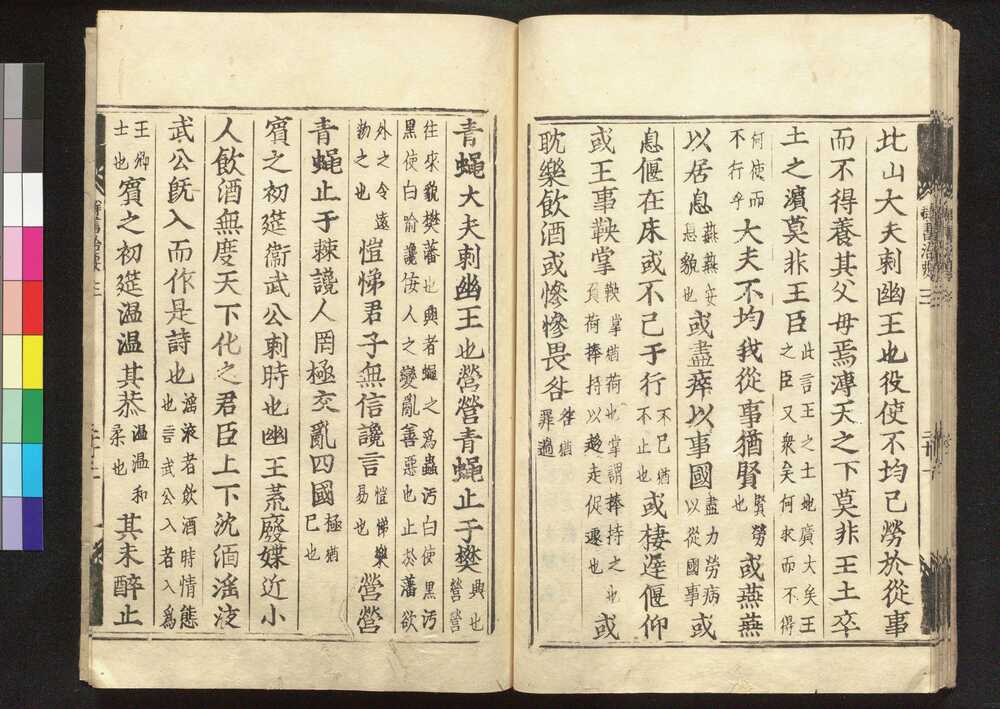 北山大夫刺幽王也役使不均己勞於從事
而不得養其父母焉溥天之下莫非王土率
土之濱莫非王臣此言王之土地廣大矣王之臣又衆矣何求而不得
何使而不行乎大夫不均我從事獨賢賢勞也或燕燕
以居息燕燕安息貌也或盡瘁以事國盡力勞病以從國事或
息偃在床或不已于行不已猶不止也或棲遲偃仰
或王事鞅掌鞅掌猶荷也掌謂捧持之也負荷捧持以趍走促遽也或
耽樂飲酒或慘慘畏咎咎猶罪過
青蠅大夫刺幽王也營營青蠅止于樊興也營營
往來貌樊藩也興者蠅之爲蟲汚白使黑汚黑使白喻讒佞人之變亂善惡也止於藩欲
外之令遠物之也愷悌君子無信讒言愷悌樂易也營營
青蠅止于棘讒人罔極交亂四國極猶已也
賓之初筵衛武公刺時也幽王荒廢媟近小
人飲酒無度天下化之君臣上下沈湎淫液
武公既入而作是詩也淫液者飲酒時情態也言武公入者入爲
王卿士也賓之初筵温温其恭温温和柔也其未醉止
群書治要 三